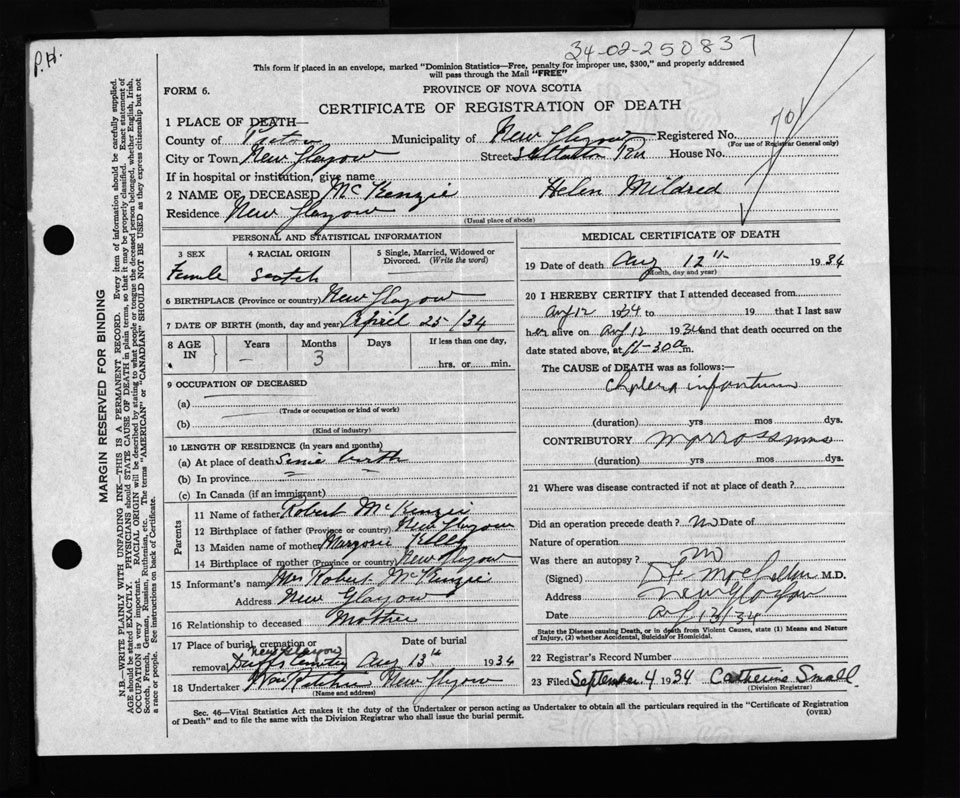 34-02-250837
P.H.
This form if placed in an envelope, marked "Dominion Statistics—Free, penalty for improper use, $300," and properly addressed
will pass through the Mail "FREE"
FORM 6.
PROVINCE OF NOVA SCOTIA
CERTIFICATE OF REGISTRATION OF DEATH
701
1 PLACE OF DEATH—
County of Pictou Municipality of New Glasgow Registered No.
(For use of Registrar General only)
City or Town New Glasgow Street House No.
If in hospital or institution, give name
2 NAME OF DECEASED McKenzie Helen Mildred
Residence New Glasgow
(Usual place of abode)
PERSONAL AND STATISTICAL INFORMATION
3 SEX 4 RACIAL ORIGIN 5 Single, Married, Widowed or
Divorced. (Write the word)
Female Scotch
6 BIRTHPLACE (Province or country) New Glasgow
7 DATE OF BIRTH (month, day and year) April 25/34
8 AGE IN Years Months Days If less than one day,
– 3 hrs, or min.
9 OCCUPATION OF DECEASED
(a)
(Trade or occupation or kind of work)
(b)
(Kind of industry)
10 LENGTH OF RESIDENCE (in years and months)
(a) At place of death Since birth
(b) In province
(c) In Canada (if an immigrant)
Parents
11 Name of father Robert McKenzie
12 Birthplace of father (Province or country) New Glasgow
13 Maiden name of mother Marjorie Kelly
14 Birthplace of mother (Province or country) New Glasgow
15 Informant's name Mrs Robert McKenzie
Address New Glasgow
16 Relationship to deceased Mother
17 Place of burial, cremation or Date of burial
New Glasgow
removal Duffs Cemetery Aug 13th 1934
18 Undertaker New Glasgow
(Name and address)
MEDICAL CERTIFICATE OF DEATH
19 Date of death Aug 12th 1934
(Month, day and year)
20 I HEREBY CERTIFY that I attended deceased from
Aug 12 1934 to 19 that I last saw
her alive on Aug 12 1934 and that death occurred on
date stated above, at 11-30 a m.
The CAUSE of DEATH was as follows:—
Cholera infantum
(duration) yrs mos dys.
CONTRIBUTORY
(duration) yrs mos dys.
21 Where was disease contracted if not at place of death?
Did an operation precede death? No Date of
Nature of operation
Was there an autopsy? No
(Signed) M.D.
Address New Glasgow
Date Aug 13/34
State the Disease causing Death, or in death from Violent Causes, state (1) Means and Nature
of Injury, (2) whether Accidental, Suicidal or Homicidal.
22 Registrar's Record Number
23 Filed September 4 1934 Catherine Small
(Division Registrar)
Sec. 46—Vital Statistics Act makes it the duty of the Undertaker or person acting as Undertaker to obtain all the particulars required in the "Certificate of Registration
of Death" and to file the same with the Division Registrar who shall issue the burial permit.
(OVER)
MARGIN RESERVED FOR BINDING
N.B.—WRITE PLAINLY WITH UNFADING INK—THIS IS A PERMANENT RECORD. Every item of information should be carefully supplied.
AGE should be stated EXACTLY. PHYSICIANS should STATE CAUSE OF DEATH in plain terms, so that it may be properly classified. Exact statement of
OCCUPATION is very important. RACIAL ORIGIN will be described by stating to what people or tongue the deceased person belonged, whether English, Irish,
Scotch, French, German, Russian, Ruthenian, etc. The terms "AMERICAN" or "CANADIAN" SHOULD NOT BE USED as they express citizenship but not
a race or people. See instructions on back of Certificate.